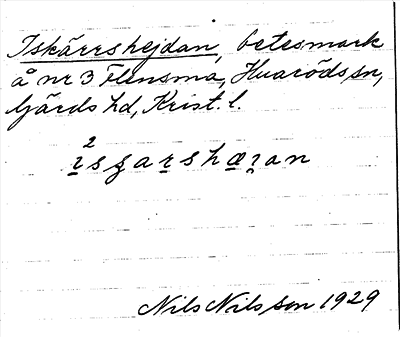 Iskärrshejdan, betesmark
å nr 3 Flensma, Huaröds sn,
Gärds hd, Krist. l.
Nils Nilsson 1929